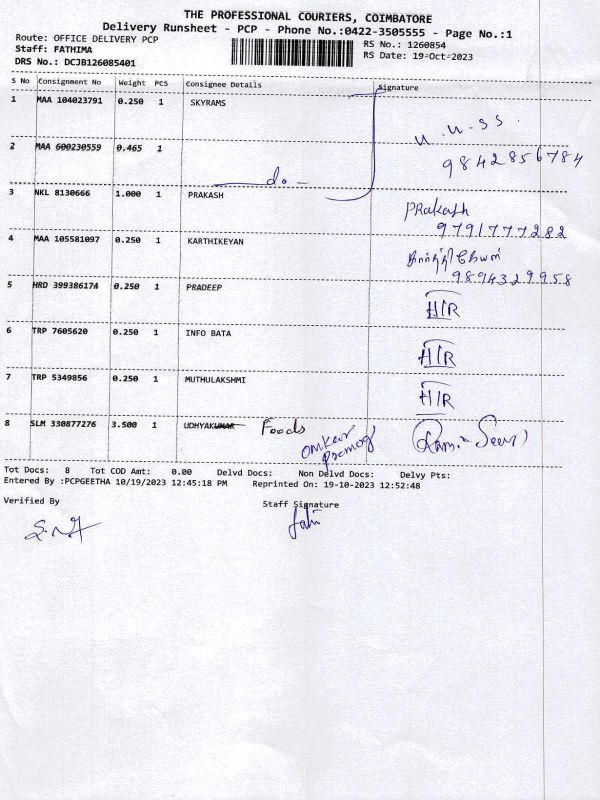 THE PROFESSIONAL COURIERS, COIMBATORE
Delivery Runsheet - PCP - Phone No.:0422-3505555 - Page No.:1
Route: OFFICE DELIVERY PCP RS No.: 1260854
Staff: FATHIMA RS Date: 19-Oct-2023
DRS No.: DCJB126085401
S No Consignment No Weight PCS Consignee Details Signature
1 MAA 104023791 0.250 1 SKYRAMS U.U.SS.
9842856784
2 MAA 600230559 0.465 1
do -
3 NKL 8130666 1.000 1 PRAKASH PRakash
9791777282
4 MAA 105581097 0.250 1 KARTHIKEYAN கார்த்திகேயன்
9894329958
5 HRD 399386174 0.250 1 PRADEEP HIR
6 TRP 7605620 0.250 1 INFO BATA HIR
7 TRP 5349856 0.250 1 MUTHULAKSHMI HIR
8 SLM 330877276 3.500 1 UDHYAKUMAR Foods
Omkar
Tot Docs: 8 Tot COD Amt: 0.00 Delvd Docs: Non Delvd Docs: Delvy Pts:
Entered By :PCPGEETHA 10/19/2023 12:45:18 PM Reprinted On: 19-10-2023 12:52:48
Verified By Staff Signature